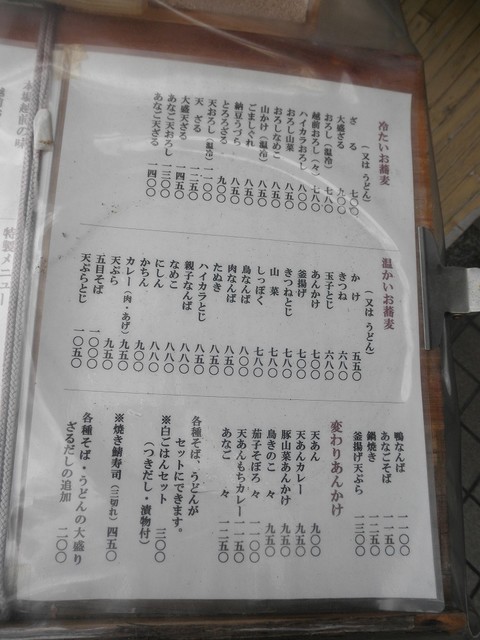 冷たいお蕎麦
(又は うどん)
ざる 七〇〇
大盛ざる 九〇〇
おろし(温冷) 七八〇
越前おろし(々) 七八〇
ハイカラおろし 八〇〇
おろし山菜 八五〇
おろしなめこ 八五〇
山かけ(温冷) 八五〇
ごましぐれ 八五〇
納豆うづら 八五〇
とろろざる 九〇〇
天おろし(温冷) 一一〇〇
天ざる
大盛天ざる 一四五〇
あなご天おろし 一三〇〇
あなご天ざる 一四〇〇
温かいお蕎麦
(又は うどん)
かけ 五五〇
きつね 六八〇
玉子とじ 六八〇
あんかけ 七〇〇
釜揚げ 七〇〇
きつねとじ 七八〇
山菜 七八〇
しっぽく 七八〇
鳥なんば 八〇〇
肉なんば 八五〇
たぬき 八五〇
ハイカラとじ 八五〇
親子なんば 八八〇
なめこ 八八〇
にしん 八八〇
かちん 九〇〇
カレー(肉・あげ) 九〇〇
天ぷら 九五〇
五目そば 一〇〇〇
天ぷらとじ 一〇五〇
鴨なんば 一一〇〇
あなごそば 一一五〇
鍋焼き 一二五〇
釜揚げ天ぷら 一三〇〇
変わりあんかけ
天あん 九〇〇
天あんカレー 九五〇
豚山菜あんかけ 九五〇
鳥きのこ 々 九五〇
茄子そぼろ 々 一〇〇〇
天あんもちカレー 一一五〇
あなご 々 一二五〇
各種そば、うどんが
セットにできます。
※白ごはんセット 三〇〇
(つきだし・漬物付)
※焼き鯖寿司(三切れ) 四五〇
各種そば・うどんの大盛り
ざるだしの追加 二〇〇
特製メニュー